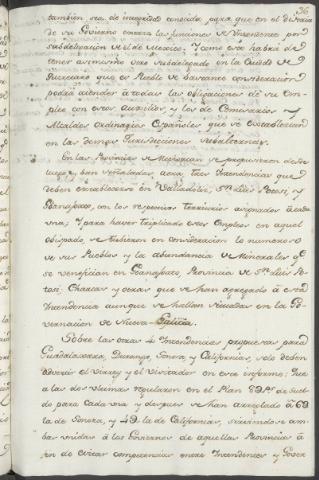 36
tambien sea de integridad conocida, para que en el distrito
de su Govierno exerza las funciones de Yntendente por
subdelegacion de el de Mexico; Y como este habrá de
tener asimismo otro subdelegado en la Ciudad de
Queretaro que es Pueblo de bastante consideracion
podrá atender á todas las obligaciones de su Em-
pleo con estos Auxilios, y los de Comisarios y
Alcaldes ordinarios Españoles, que se establezcan
en las demas Jurisdicciones subalternas.
En las Provincias de Mechoacan se propusieron desde
luego, y van señaladas, aora, tres Yntendencias que
deben establecerse en Valladolid, Sn. Luis Potosi, y
Guanaxuato, con los respectivos territorios asignados á cada
una; Y para haver triplicado estos Empleos en aquel
obispado, se tubieron en consideracion lo numeroso
de sus Pueblos y la abundancia de Minerales qe.
se benefician en Guanaxuato, Provincia de Sn. Luis Po-
tosi, Charcas y otras que se han agregado á esta
Yntendencia aunque se hallan situadas en la Go-
vernacion de Nueva Galicia.
Sobre las otras 4 Yntendencias propuestas para
Guadalaxara, Durango, Sonora y Californias, solo deben
advertir el Virrey y el Visitador en este informe, que
á las dos ultimas regularon en el Plan 8 de suel-
do para cada una y despues se han arreglado á 6
la de Sonora, y 4 la de Californias, sirviendose am-
bas unidas á los Goviernos de aquellas Provincias á
fin de evitar competencias entre Yntendentes y Gover